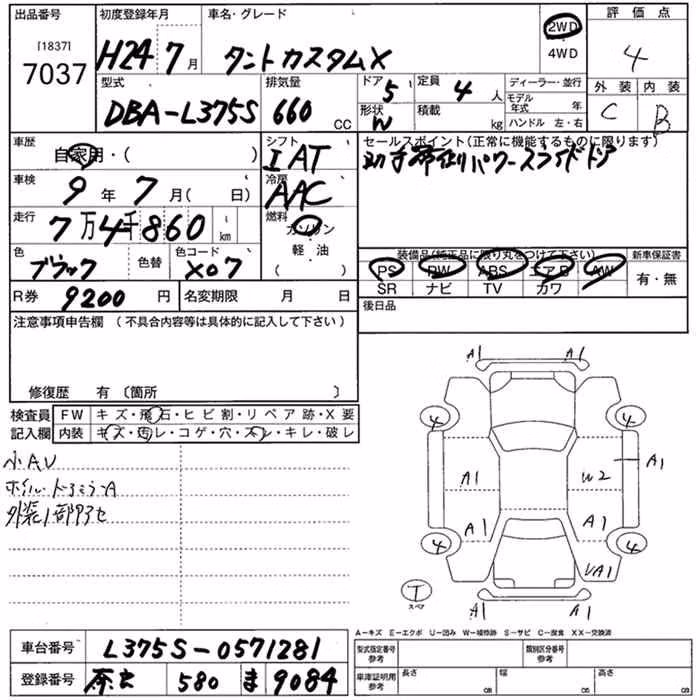 出品番号 初度登録年月 車名・グレード 評価点
[1837]
7037
H24 7月 タントカスタムX 2WD 4WD 4
型式 排気量 ドア 5 定員 4人 ディーラー・並行 外装 内装
モデル年式 年
DBA-L375S 660 CC 形状 W 積載 kg ハンドル 左・右 C B
車歴 自家用・( ) シフト IAT セールスポイント(正常に機能するものに限ります)
助手席側パワースライドドア
車検 9年 7月( 日) 冷房 AAC
走行 7万4千860km 燃料 ガソリン 軽油
色 ブラック 色替 色コード X07
装備品(純正品に限り丸をつけて下さい) 新車保証書
PS PW ABS エアB AW 有・無
SR ナビ TV カワ
R券 9200円 名変期限 月 日 後日品
注意事項申告欄 (不具合内容等は具体的に記入して下さい)
修復歴 有〔箇所 〕
検査員 FW キズ・飛石・ヒビ割・リペア跡・X要
記入欄 内装 キズ・汚レ・コゲ・穴・スレ・キレ・破レ
小AU
A
A1 A1
4 4
A1 W2 A1
A1 A1
4 4
UA1
T
スペア
A－キズ E－エクボ U－凹み W－補修跡 S－サビ C－腐食 XX－交換済
車台番号 L375S-0571281 型式指定番号 参考 類別区分番号 参考
登録番号 580 ま 9084 車庫証明用 参考 長さ cm 幅 cm 高さ cm